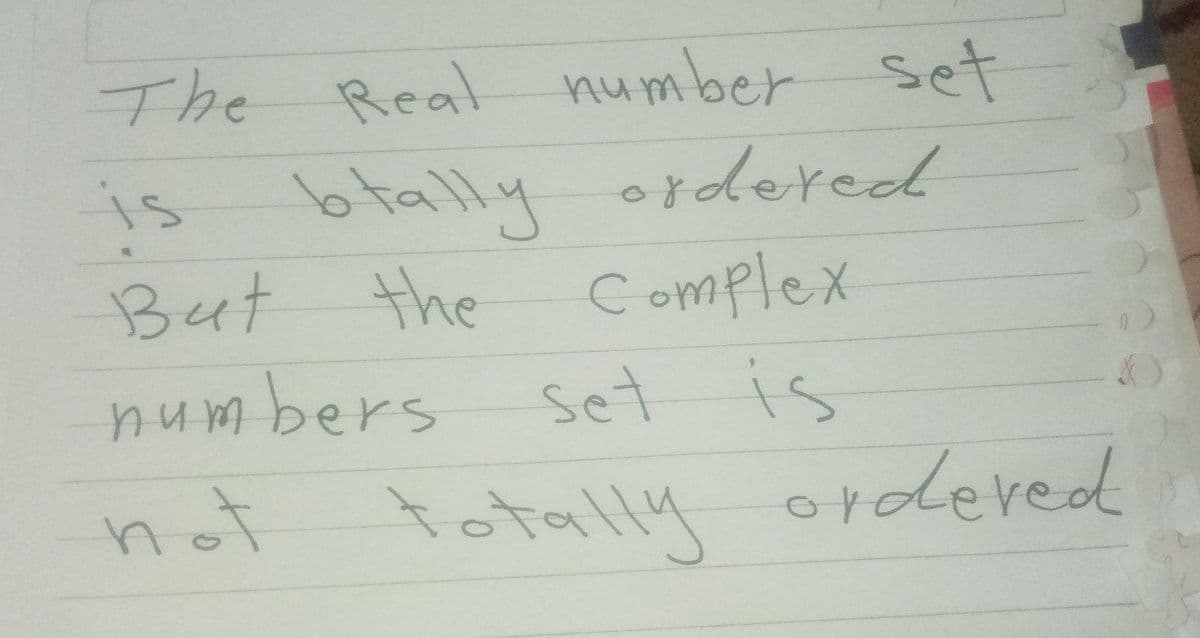 The Real number set
is totally ordered
But the Complex
numbers set is
not totally ordered